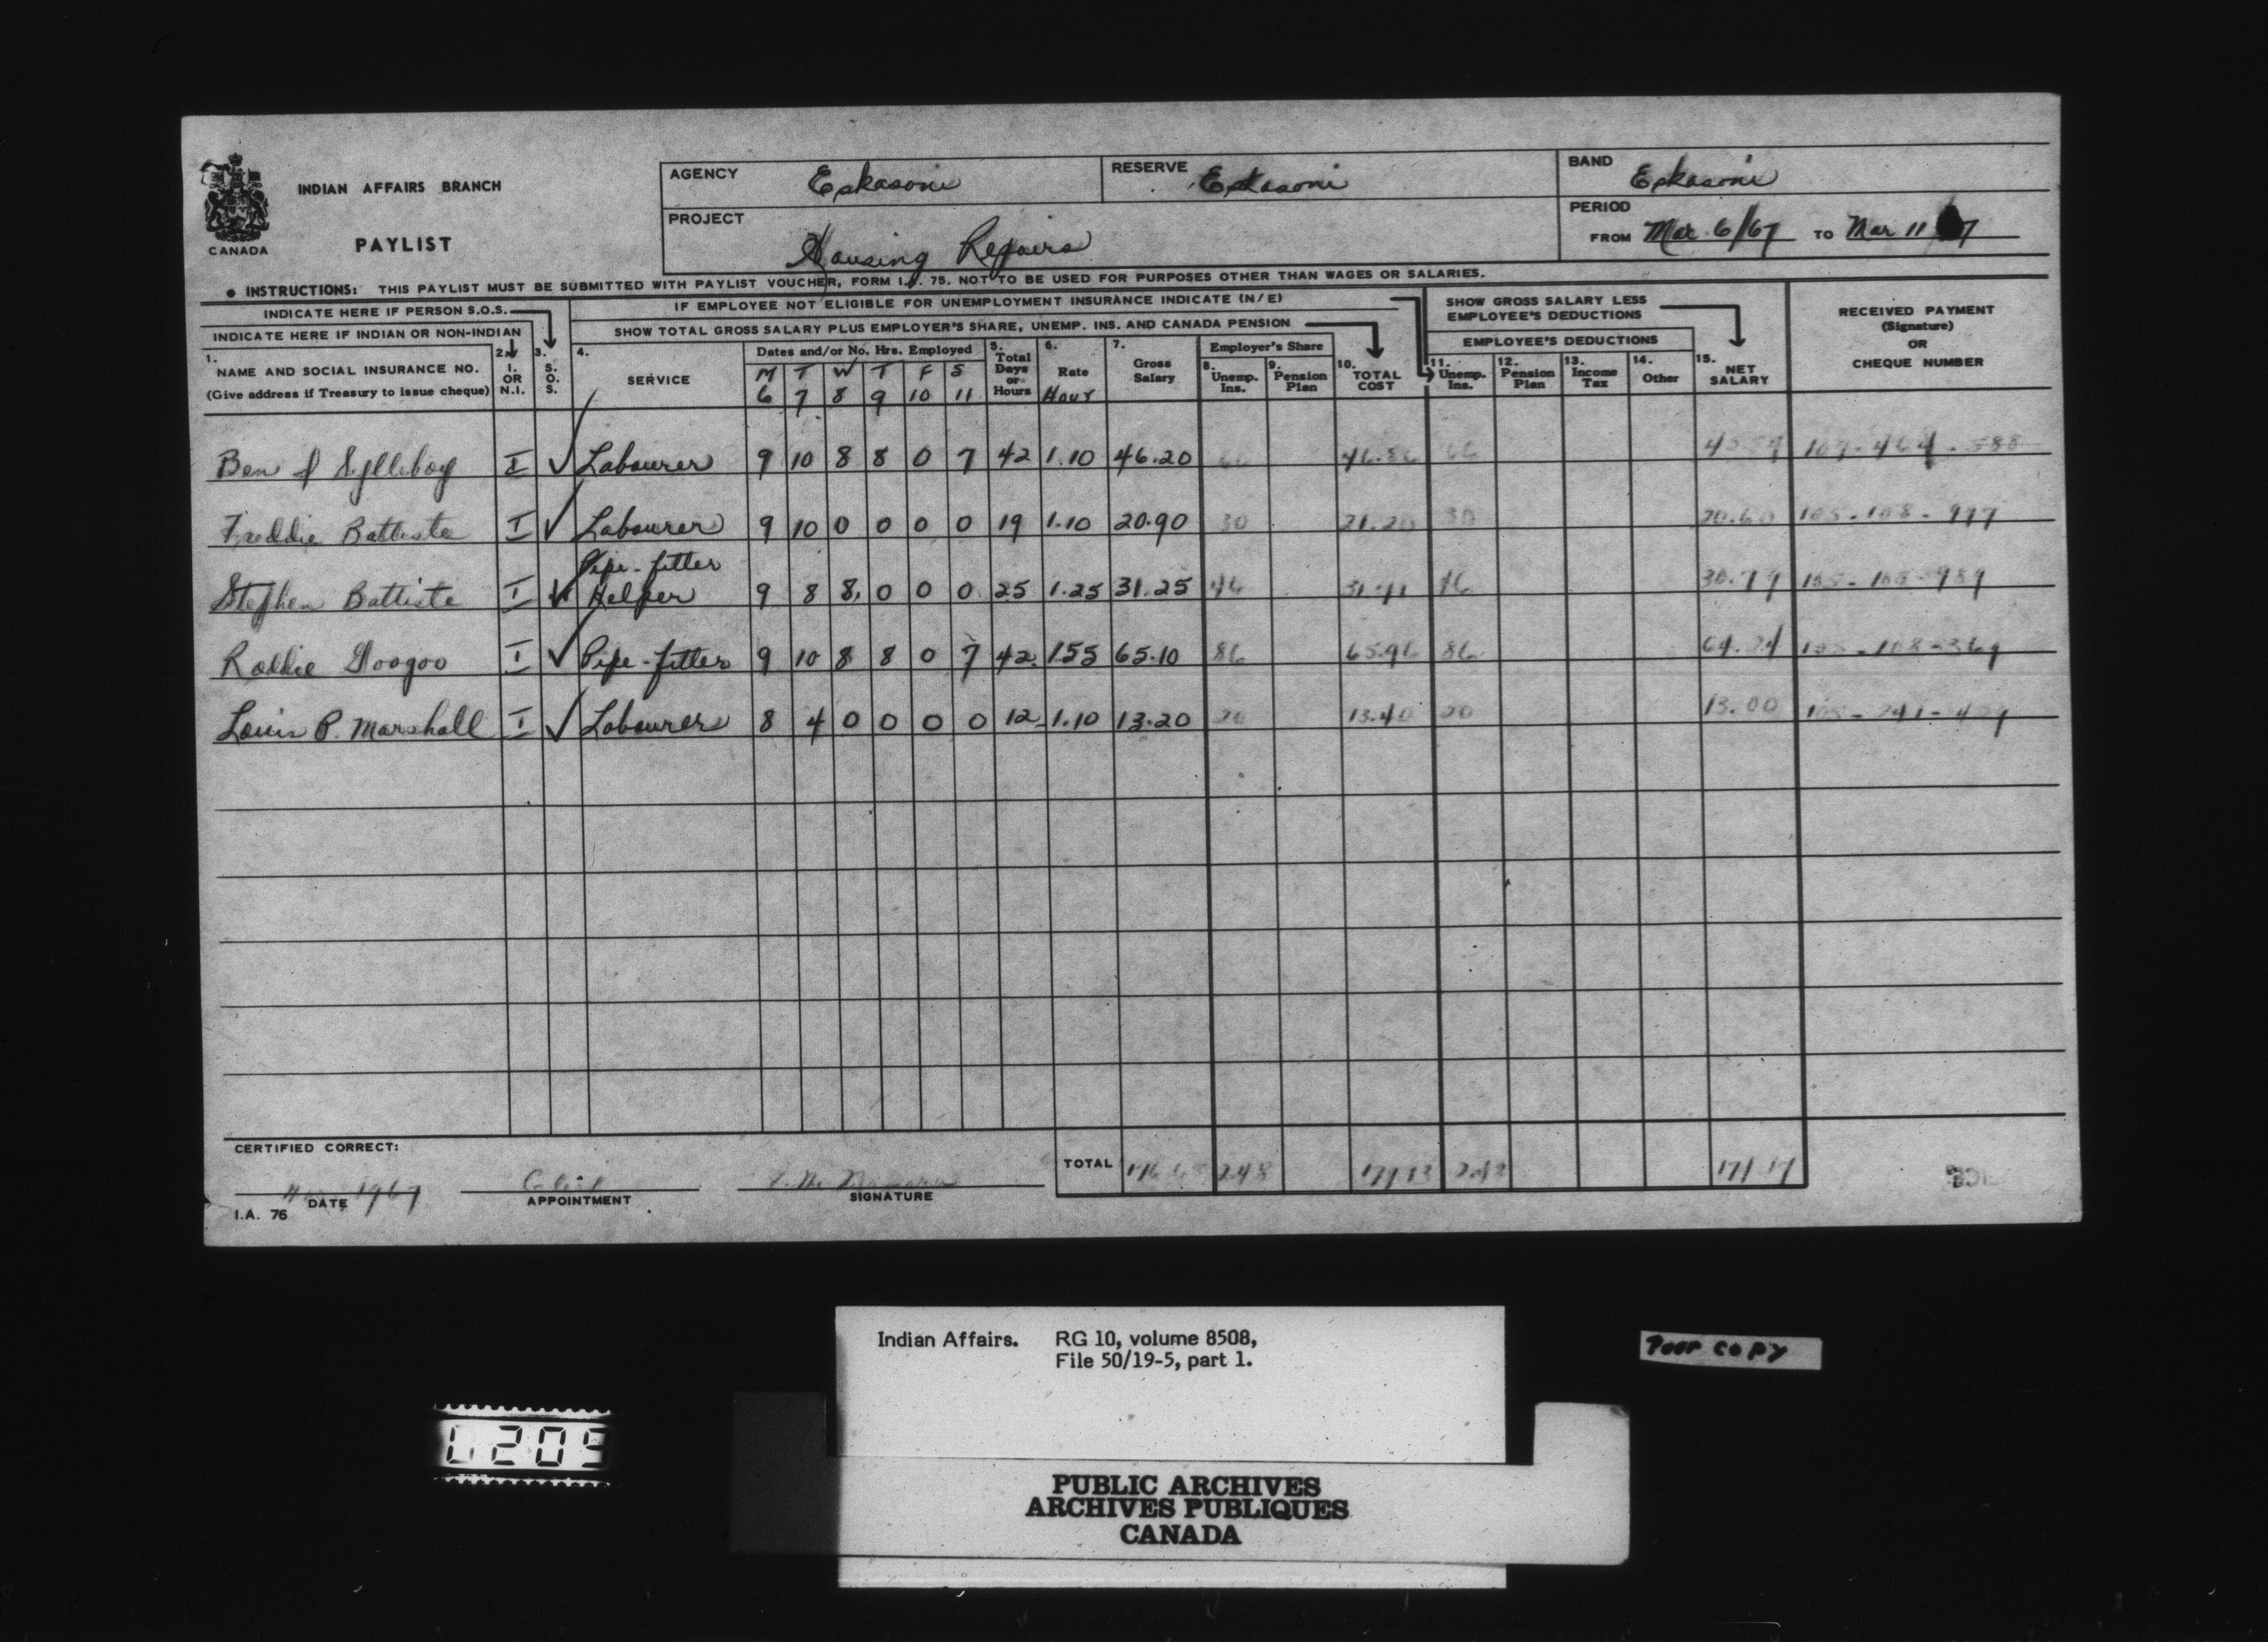 CANADA
INDIAN AFFAIRS BRANCH
PAYLIST
AGENCY Eskasoni
RESERVE Eskasoni
BAND Eskasoni
PROJECT Housing Repairs
PERIOD
FROM Mar 6/67 TO Mar 11 7
● INSTRUCTIONS: THIS PAYLIST MUST BE SUBMITTED WITH PAYLIST VOUCHER, FORM I.A. 75. NOT TO BE USED FOR PURPOSES OTHER THAN WAGES OR SALARIES.
INDICATE HERE IF PERSON S.O.S.
INDICATE HERE IF INDIAN OR NON-INDIAN
IF EMPLOYEE NOT ELIGIBLE FOR UNEMPLOYMENT INSURANCE INDICATE (N/E)
SHOW TOTAL GROSS SALARY PLUS EMPLOYER'S SHARE, UNEMP. INS. AND CANADA PENSION
SHOW GROSS SALARY LESS
EMPLOYEE'S DEDUCTIONS
RECEIVED PAYMENT
(Signature)
OR
CHEQUE NUMBER
1. NAME AND SOCIAL INSURANCE NO.
(Give address if Treasury to issue cheque)
2. I. OR N.I.
3. S. O. S.
4. SERVICE
Dates and/or No. Hrs. Employed
M T W T F S
6 7 8 9 10 11
5. Total Days or Hours
6. Rate Hour
7. Gross Salary
Employer's Share
8. Unemp. Ins.
9. Pension Plan
10. TOTAL COST
EMPLOYEE'S DEDUCTIONS
11. Unemp. Ins.
12. Pension Plan
13. Income Tax
14. Other
15. NET SALARY
Ben Sylliboy I ✓ Labourer 9 10 8 8 0 7 42 1.10 46.20
Freddie Battiste I ✓ Labourer 9 10 0 0 0 0 19 1.10 20.90 30 21.20 30 20.60
Stephen Battiste I ✓ Pipe-fitter
Helper 9 8 8 0 0 0 25 1.25 31.25 30.79
Roddie Googoo I ✓ Pipe-fitter 9 10 8 8 0 7 42 1.55 65.10 86 65.96 86 64.24
Louis P. Marshall I ✓ Labourer 8 4 0 0 0 0 12 1.10 13.20 20 13.40 20 13.00
CERTIFIED CORRECT:
TOTAL 2.48
1967
DATE
APPOINTMENT
SIGNATURE
I.A. 76
Indian Affairs. RG 10, volume 8508,
File 50/19-5, part 1.
Poor copy
PUBLIC ARCHIVES
ARCHIVES PUBLIQUES
CANADA